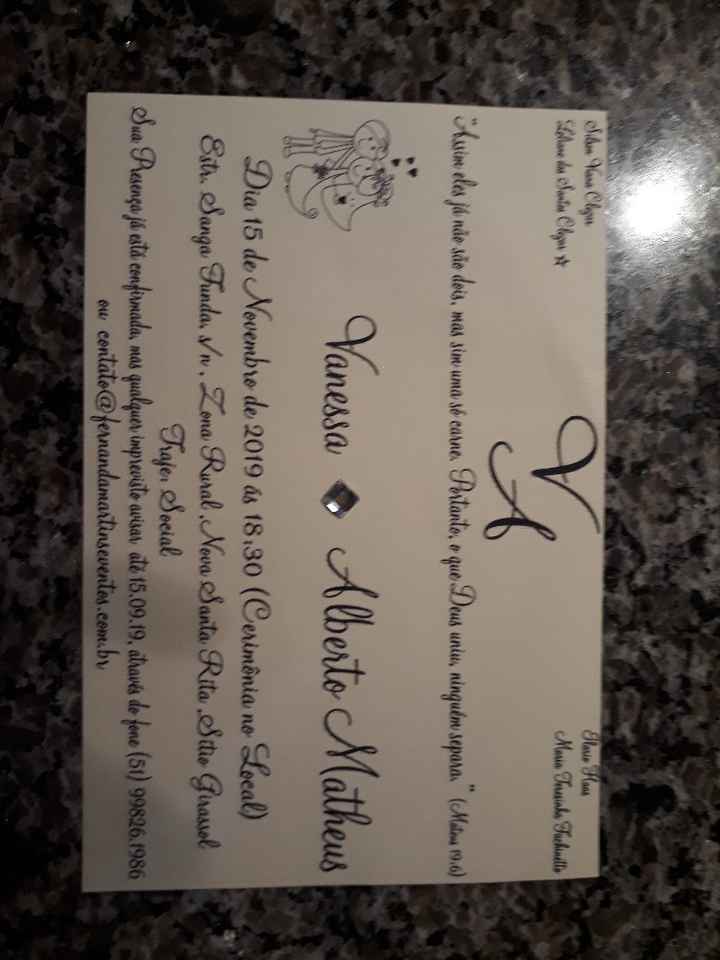 Vieira
dos Santos
V
A
Maria Teresinha
"Assim eles já não são dois, mas sim uma só carne. Portanto, o que Deus uniu, ninguém separa." (Mateus 19.6)
Vanessa Alberto Matheus
Dia 15 de Novembro de 2019 ás 18:30 (Cerimônia no Local)
Estr. Sanga Funda, s/n , Zona Rural ,Nova Santa Rita ,Sítio Girassol
Traje: Social
Sua Presença já está confirmada, mas qualquer imprevisto avisar até 15.09.19, através do fone (51) 99826.1986
ou contato@fernandamartinseventos.com.br